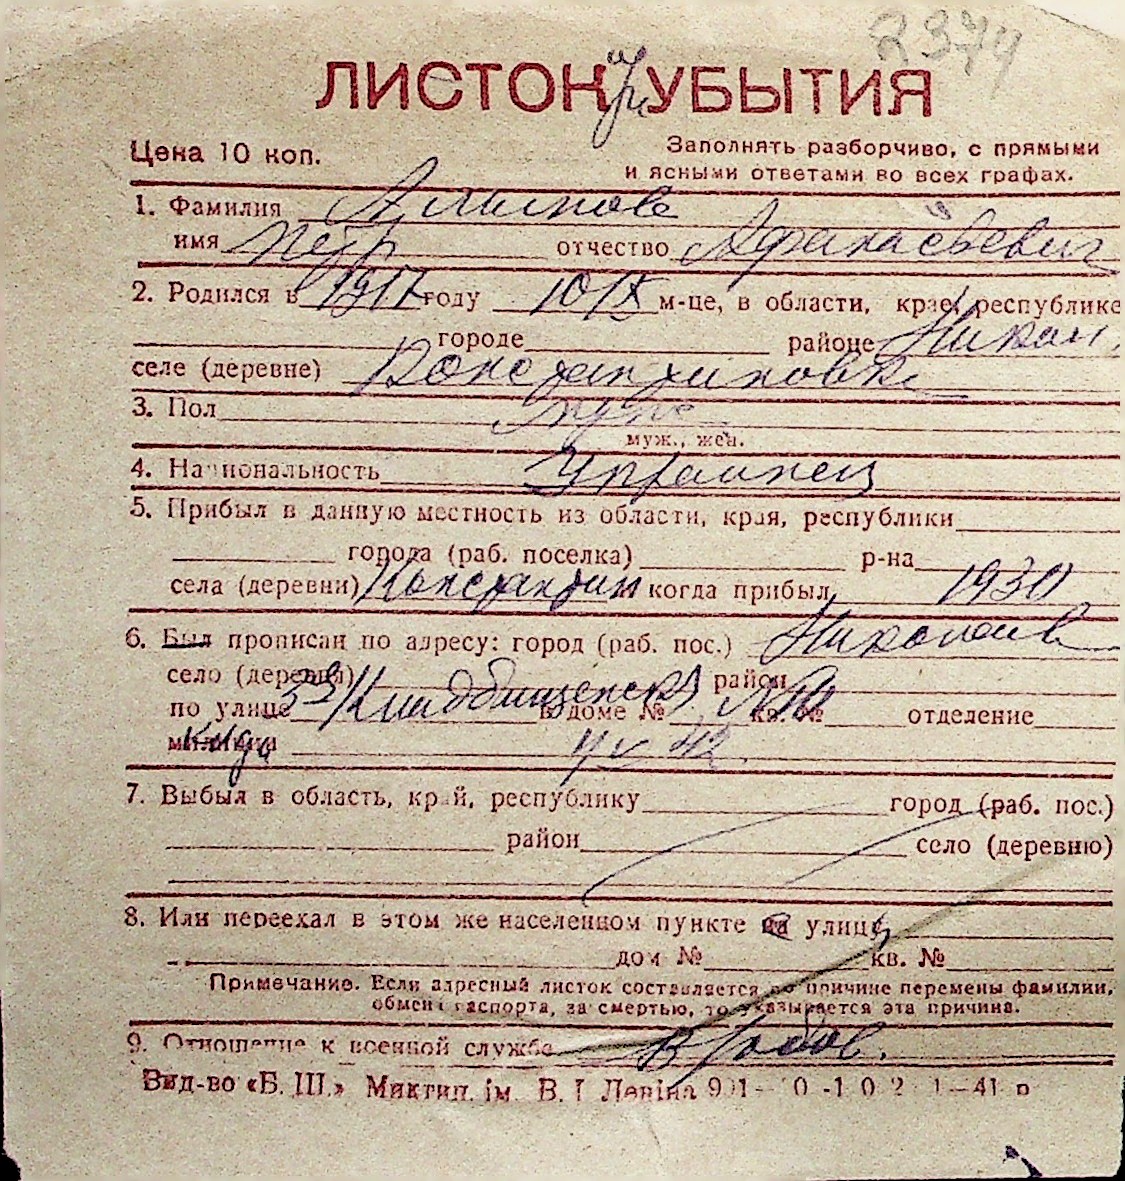 2374
ЛИСТОК УБЫТИЯ
при
Цена 10 коп.
Заполнять разборчиво, с прямыми
и ясными ответами во всех графах.
1. Фамилия
имя Петр отчество Афанасьевич
2. Родился в 1917 году 10/IX м-це, в области, крае, республике
городе районе Никол.
селе (деревне) Константиновка
3. Пол муж
муж., жен.
4. Национальность Украинец
5. Прибыл в данную местность из области, края, республики
города (раб. поселка) р-на
села (деревни) Константин когда прибыл 1930
6. Был прописан по адресу: город (раб. пос.) Николаев
село (деревня) район
по улице Кладбищенск в доме № кв. № отделение
милиции
7. Выбыл в область, край, республику город (раб. пос.)
район село (деревню)
8. Или переехал в этом же населенном пункте на улицу
дом № кв. №
Примечание. Если адресный листок составляется по причине перемены фамилии,
обмена паспорта, за смертью, то указывается эта причина.
9. Отношение к военной службе
Вид-во «Б. Ш.» Миктип. ім. В. І Леніна